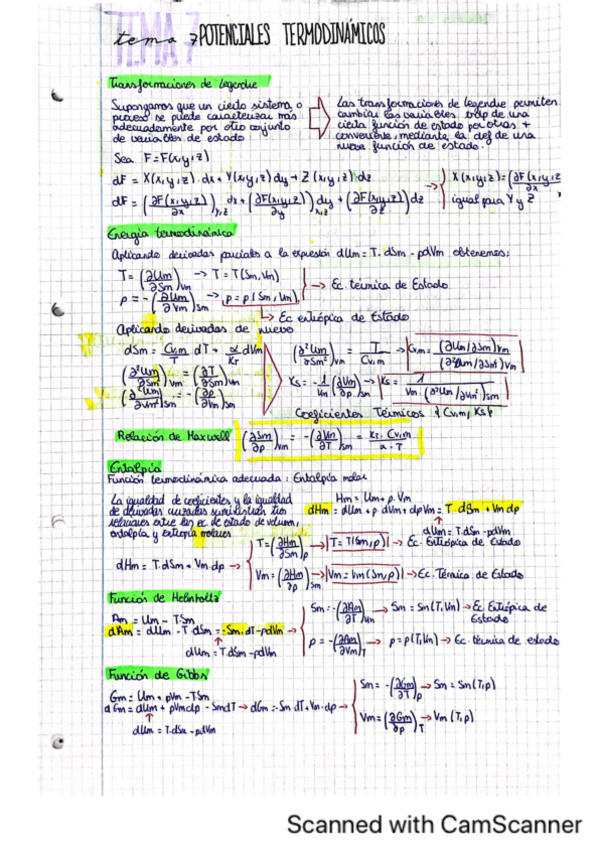 TEMA 7
tema 7 POTENCIALES TERMODINÁMICOS
Transformaciones de Legendre
Supongamos que un cierto sistema o
proceso se puede caracterizar más
adecuadamente por otro conjunto
de variables de estado
Las transformaciones de legendre permiten
cambiar las variables indep de una
cierta función de estado por otras +
convenientes, mediante la def de una
nueva función de estado.
Sea F=F(x,y,z)
dF = X(x,y,z)·dx+Y(x,y,z)dy+Z(x,y,z)dz
dF = (∂F(x,y,z)/∂x)y,z dx+(∂F(x,y,z)/∂y)x,z dy+(∂F(x,y,z)/∂z) dz
X(x,y,z)=(∂F(x,y,z)/∂x
igual para Y y Z
Energía termodinámica
Aplicando derivadas parciales a la expresión dUm=T·dSm-pdVm obtenemos:
T=(∂Um/∂Sm)Vm → T=T(Sm,Vm)
p=-(∂Um/∂Vm)Sm → p=p(Sm,Vm)
→ Ec. térmica de Estado
→ Ec entrópica de Estado
Aplicando derivadas de nuevo
dSm = Cv,m/T dT + α/KT dVm
(∂²Um/∂Sm²)Vm = (∂T/∂Sm)Vm
(∂²Um/∂Vm²)Sm = -(∂p/∂Vm)Sm
(∂²Um/∂Sm²)Vm = T/Cv,m → Cv,m = (∂Um/∂Sm)Vm/(∂²Um/∂Sm²)Vm
Ks = -1/Vm (∂Vm/∂p)Sm → Ks = 1/Vm·(∂²Um/∂Vm²)Sm
Coeficientes Térmicos { Cv,m, Ks }
Relación de Maxwell (∂Sm/∂p)Vm = -(∂Vm/∂T)Sm = KT·Cv,m/α·T
Entalpía
Función termodinámica adecuada: Entalpía molar
La igualdad de coeficientes y la igualdad
de derivadas cruzadas suministran tres
relaciones entre las ec de estado de volumen,
entalpía y entropía molares
Hm = Um+p·Vm
dHm = dUm+p·dVm+dpVm = T·dSm+Vmdp
dUm=T·dSm-pdVm
dHm = T·dSm+Vm·dp →
T=(∂Hm/∂Sm)p → T=T(Sm,p) → Ec. Entrópica de Estado
Vm=(∂Hm/∂p)Sm → Vm=Vm(Sm,p) → Ec. Térmica de Estado
Función de Helmholtz
Am = Um-TSm
dAm = dUm-T·dSm = -Sm·dT-pdVm →
dUm=T·dSm-pdVm
Sm=-(∂Am/∂T)Vm → Sm=Sm(T,Vm) → Ec. Entrópica de
Estado
p=-(∂Am/∂Vm)T → p=p(T,Vm) → Ec. térmica de estado
Función de Gibbs
Gm = Um+pVm-TSm
dGm = dUm+pVmdp-SmdT → dGm=-Sm·dT+Vm·dp →
dUm=T·dSm-pdVm
Sm=-(∂Gm/∂T)p → Sm=Sm(T,p)
Vm=(∂Gm/∂p)T → Vm(T,p)
Scanned with CamScanner